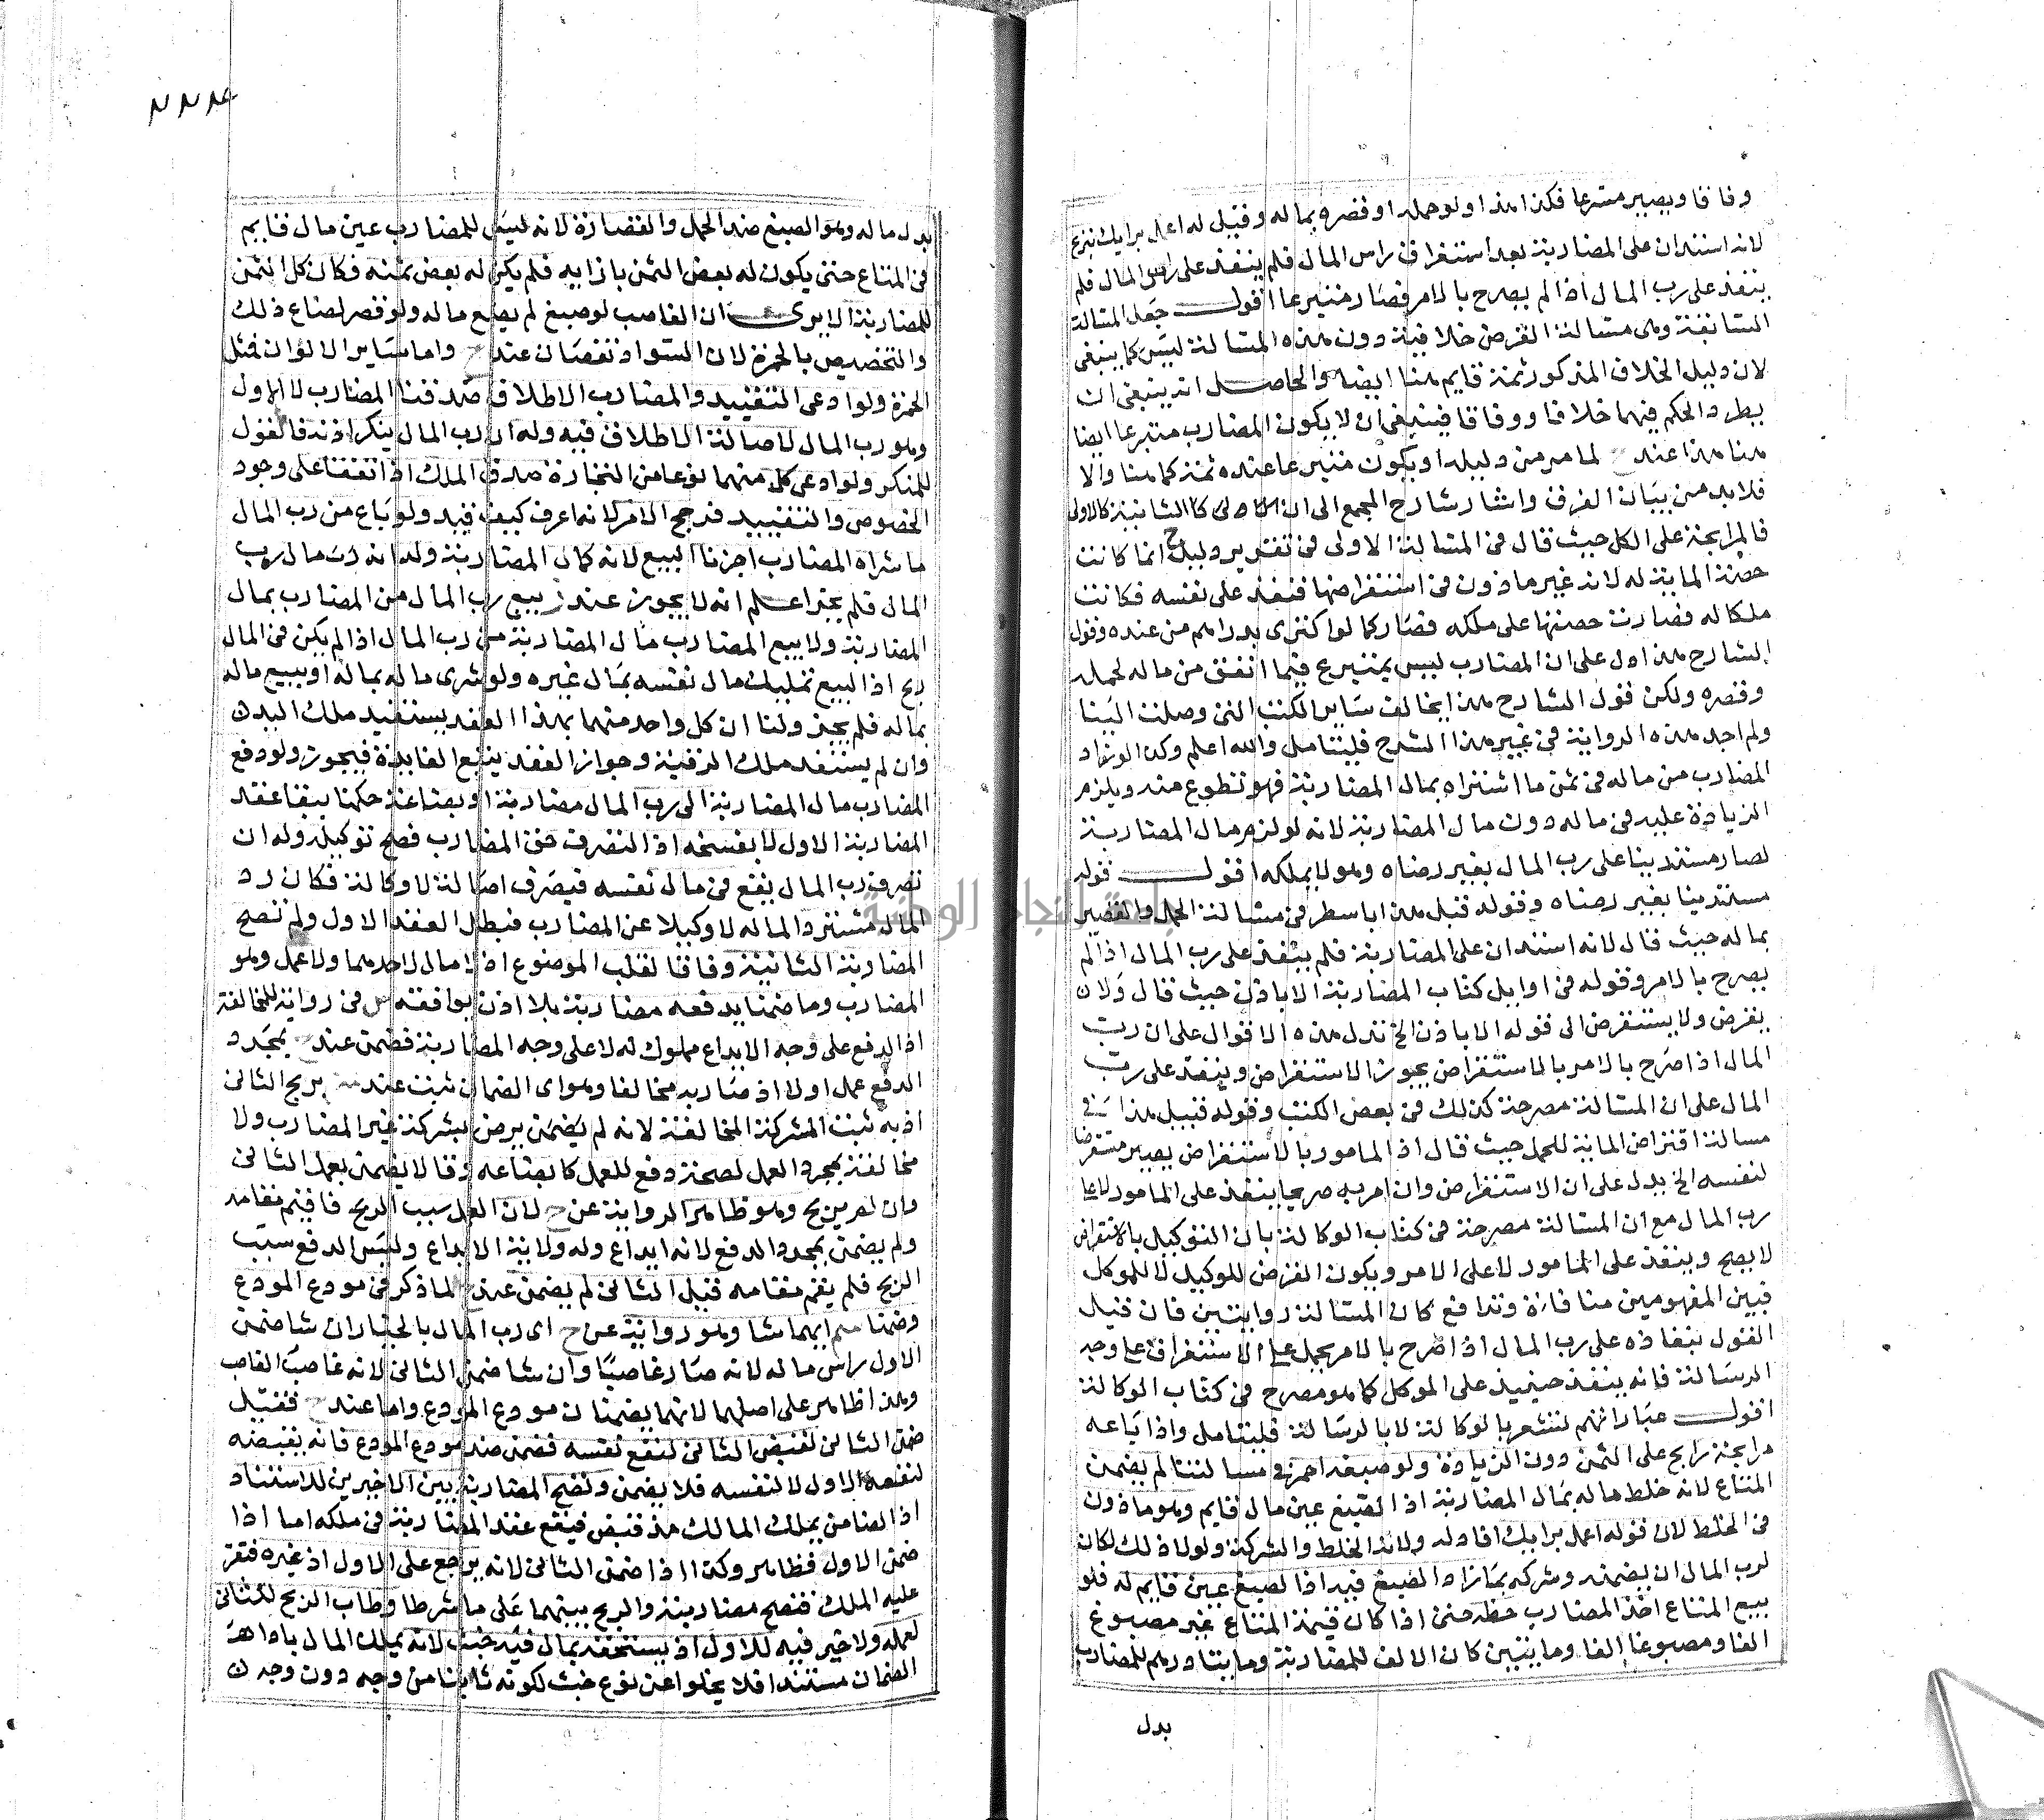 وفاقا ويصير متبرعا فكذا هذا ولو حمله او قصره بماله وقيل له اعمل برايك تبرع
لانه استدان على المضاربة بعد استغراق راس المال فلم ينفذ على راس المال فلم
ينفذ على رب المال اذا لم يصرح بالامر فصار متبرعا اقول جعل المسالة
السابقة وهى مسالة القرض خلافية دون هذه المسالة ليس كما ينبغى
لان دليل الخلاف المذكور ثمة قايم هنا ايضا والحاصل انه ينبغى ان
يطرد الحكم فيهما خلافا ووفاقا فينبغى ان لا يكون المضارب متبرعا ايضا
هنا هذا عند لما مر من دليله او يكون متبرعا عنده ثمة كما هنا والا
فلا بد من بيان الفرق واشار شارح المجمع الى ان الثانية كالاولى
فالمرابحة على الكل حيث قال فى المسالة الاولى فى تقرير دليل ح انما كانت
حصة الماية له لانه غير ماذون فى استقراضها فنفذ على نفسه فكانت
ملكا له فصارت حصتها على ملكه فصار كما لو اكترى بدراهم من عنده وقول
الشارح هذا دل على ان المضارب ليس بمتبرع فيما انفق من ماله لحمله
وقصره ولكن قول الشارح هذا يخالف ساير الكتب التى وصلت الينا
ولم اجد هذه الرواية فى غير هذا الشرح فليتامل والله اعلم وكذا لو زاد
المضارب من ماله فى ثمن ما اشتراه بمال المضاربة فهو تطوع منه ويلزم
الزيادة عليه فى ماله دون مال المضاربة لانه لو لزم مال المضاربة
لصار مستدينا على رب المال بغير رضاه وهو لا يملكه اقول قوله
مستدينا بغير رضاه وقوله قبل هذا باسطر فى مسالة الحمل والقصر
بماله حيث قال لانه استدان على المضاربة فلم ينفذ على رب المال اذا لم
يصرح بالامر وقوله فى اوايل كتاب المضاربة الا باذن حيث قال ولا ان
يقرض ولا يستقرض الى قوله الا باذن الخ تدل هذه الاقوال على ان رب
المال اذا صرح بالامر بالاستقراض يجوز الاستقراض وينفذ على رب
المال على ان المسالة مصرحة كذلك فى بعض الكتب وقوله قبيل هذا فى
مسالة اقتراض الماية للحمل حيث قال اذ المامور بالاستقراض يصير مستقرضا
لنفسه الخ يدل على ان الاستقراض وان امر به صريحا ينفذ على المامور لا على
رب المال مع ان المسالة مصرحة فى كتاب الوكالة بان التوكيل بالاستقراض
لا يصح وينفذ على المامور لا على الامر ويكون القرض للوكيل لا للموكل
فبين المفهومين منافاة وتدافع كان المسالة روايتين فان قيل
القول بنفاذه على رب المال اذا صرح بالامر يحمل على الاستقراض على وجه
الرسالة فانه ينفذ حينيذ على الموكل كما هو مصرح فى كتاب الوكالة
اقول عباراتهم تشعر بالوكالة لا بالرسالة فليتامل واذا باعه
مرابحة رابح على الثمن دون الزيادة ولو صبغه احمر فى مسالتنا لم يضمن
المتاع لانه خلط ماله بمال المضاربة اذ الصبغ عين مال قايم وهو ماذون
فى الخلط لان قوله اعمل برايك افاد له ولاية الخلط والشركة ولولا ذلك لكان
لرب المال ان يضمنه وشركه بما زاد الصبغ فيه اذ الصبغ عين قايم له فلو
بيع المتاع اخذ المضارب حظه حتى اذا كان قيمة المتاع غير مصبوغ
الفا ومصبوغا الفا ومايتين كان الالف للمضاربة ومايتا درهم للمضارب
بدل
بدل ماله وهو الصبغ ضد الحمل والقصارة لانه ليس للمضارب عين مال قايم
فى المتاع حتى يكون له بعض الثمن بازايه فلم يكن له بعض ثمنه فكان كل الثمن
للمضاربة الا يرى ان الغاصب لو صبغ لم يضع ماله ولو قصر لضاع ذلك
والتخصيص بالحمرة لان السواد نقصان عند ح واما ساير الالوان فمثل
الحمرة ولو ادعى التقييد والمضارب الاطلاق صدقنا المضارب لا الاول
وهو رب المال لاصالة الاطلاق فيه وله ان رب المال ينكر اذنه فالقول
للمنكر ولو ادعى كل منهما نوعا من التجارة صدق الملك اذ اتفقا على وجود
الخصوص والتقييد فرجح الامر لانه اعرف كيف قيد ولو باع من رب المال
ما شراه المضارب اجزنا البيع لانه كمال المضاربة وله انه مال رب
المال فلم يجز اعلم انه لا يجوز عند ز بيع رب المال من المضارب بمال
المضاربة ولا بيع المضارب مال المضاربة من رب المال اذا لم يكن فى المال
ربح اذ البيع تمليك مال نفسه بمال غيره ولو شرى ماله بماله او يبيع ماله
بماله فلم يجز ولنا ان كل واحد منهما بهذا العقد يستفيد ملك اليد ان
وان لم يستفد ملك الرقبة وجواز العقد يتبع الفايدة فيجوز ولو دفع
المضارب مال المضاربة الى رب المال مضاربة او بضاعة حكمنا ببقا عقد
المضاربة الاول لا بفسخه اذ التصرف حق المضارب فصح توكيله وله ان
تصرف رب المال يقع فى مال نفسه فيصرف اصالة لا وكالة فكان رد
المال مسترد الماله لا وكيلا عن المضارب فبطل العقد الاول ولم تصح
المضاربة الثانية وفاقا لقلب الموضوع اذ لا مال لاحدهما ولا عمل ولو
المضارب وما ضمنا بدفعه مضاربة بلا اذن يوافقه فى رواية للمخالفة
اذ الدفع على وجه الايداع مملوك له لا على وجه المضاربة فضمن عند بمجرد
الدفع عمل اولا اذ صار به مخالفا وهو اى الضمان ثبت عند بربح الثانى
اذ به ثبت الشركة المخالفة لانه لم يضمن برض بشركة غير المضارب ولا
مخالفة بمجرد العمل لصحة دفع للعمل كابضاعه وقالا يضمن بعمل الثانى
وان لم يربح وهو ظاهر الرواية عن ح لان العمل سبب الربح فاقيم مقامه
ولم يضمن بمجرد الدفع لانه ايداع وله ولاية الايداع وليس الدفع سبب
الربح فلم يقم مقامه قيل الثانى لم يضمن عند ح لما ذكر فى مودع المودع
وضمنا ايهما شا وهو رواية عن ح اى رب المال بالخيار ان شا ضمن
الاول راس ماله لانه صار غاصبا وان شا ضمن الثانى لانه غاصب الغاصب
وهذا ظاهر على اصلهما لانهما يضمنان مودع المودع واما عند ح فقيل
ضمن الثانى لقبض الثانى لنفع نفسه فضمن ضد مودع المودع فانه يقبضه
لنفعه الاول لا لنفسه فلا يضمن وتصح المضاربة بين الاخيرين للاستناد
اذ الضامن يملك المالك مذ قبض فيقع عقد المضاربة فى ملكه اما اذا
ضمن الاول فظاهر وكذا اذا ضمن الثانى لانه يرجع على الاول اذ غيره فتقرر
عليه الملك فتصح مضاربته والربح بينهما على ما شرطا وطاب الربح للثانى
لعمله ولا خير فيه للاول اذ يستحقه بمال فيه خبث لانه يملك المال باداء
الضمان مستندا فلا يخلوا عن نوع خبث لكونه ثابتا من وجه دون وجه ن
جامعة النجاح الوطنية